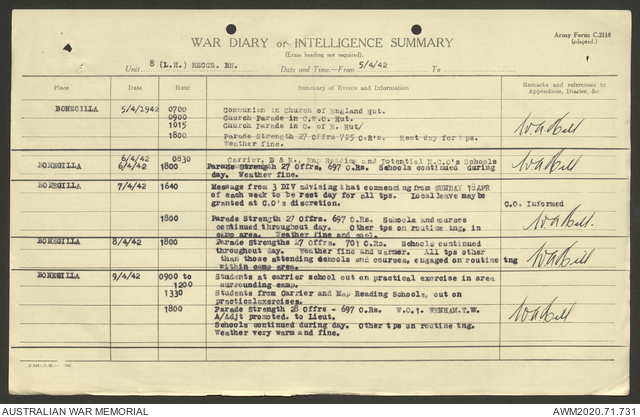 WAR DIARY or INTELLIGENCE SUMMARY
Army Form C.2118
(adapted.)
(Erase heading not required).
Unit 8 (L.H.) RECCE. BN. Date and Time—From 5/4/42 To
Place Date Hour Summary of Events and Information Remarks and references to
Appendices, Diaries, &c
BONEGILLA 5/4/1942 0700 Communion in Church of England Hut.
0900 Church Parade in C.W.O. Hut.
1015 Church Parade in C. of E. Hut/
1800 Parade Strength 27 Offrs 725 O.R's. Rest day for tps.
Weather fine.
6/4/42 0830 Carrier, D & M., Map Reading and Potential N.C.O's Schools
BONEGILLA 6/4/42 1800 Parade Strength 27 Offrs, 697 O.Rs. Schools continued during
day. Weather fine.
BONEGILLA 7/4/42 1640 Message from 3 DIV advising that commencing from SUNDAY 10APR
of each week to be rest day for all tps. Localleave may be
granted at C.O's discretion. C.O. Informed
1800 Parade Strength 27 Offrs. 697 O.Rs. Schools and courses
continued throughout day. Other tps on routine tng, in
camp area. Weather fine and cool.
BONEGILLA 8/4/42 1800 Parade Strengths 27 Offrs. 701 O.Rs. Schools continued
throughout day. Weather fine and warmer. All tps other
than those attending schools and courses, engaged on routine tng
within camp area.
BONEGILLA 9/4/42 0900 to Students at carrier school out on practical exercise in area
1200 surrounding camp.
1330 Students from Carrier and Map Reading Schools, out on
practicalexercises.
1800 Parade Strength 28 Offrs - 697 O.Rs. W.O.1. WENHAM.T.W.
A/Adjt promoted to Lieut.
Schools continued during day. Other tps on routine tng.
Weather very warm and fine.
AUSTRALIAN WAR MEMORIAL
AWM2020.71.731